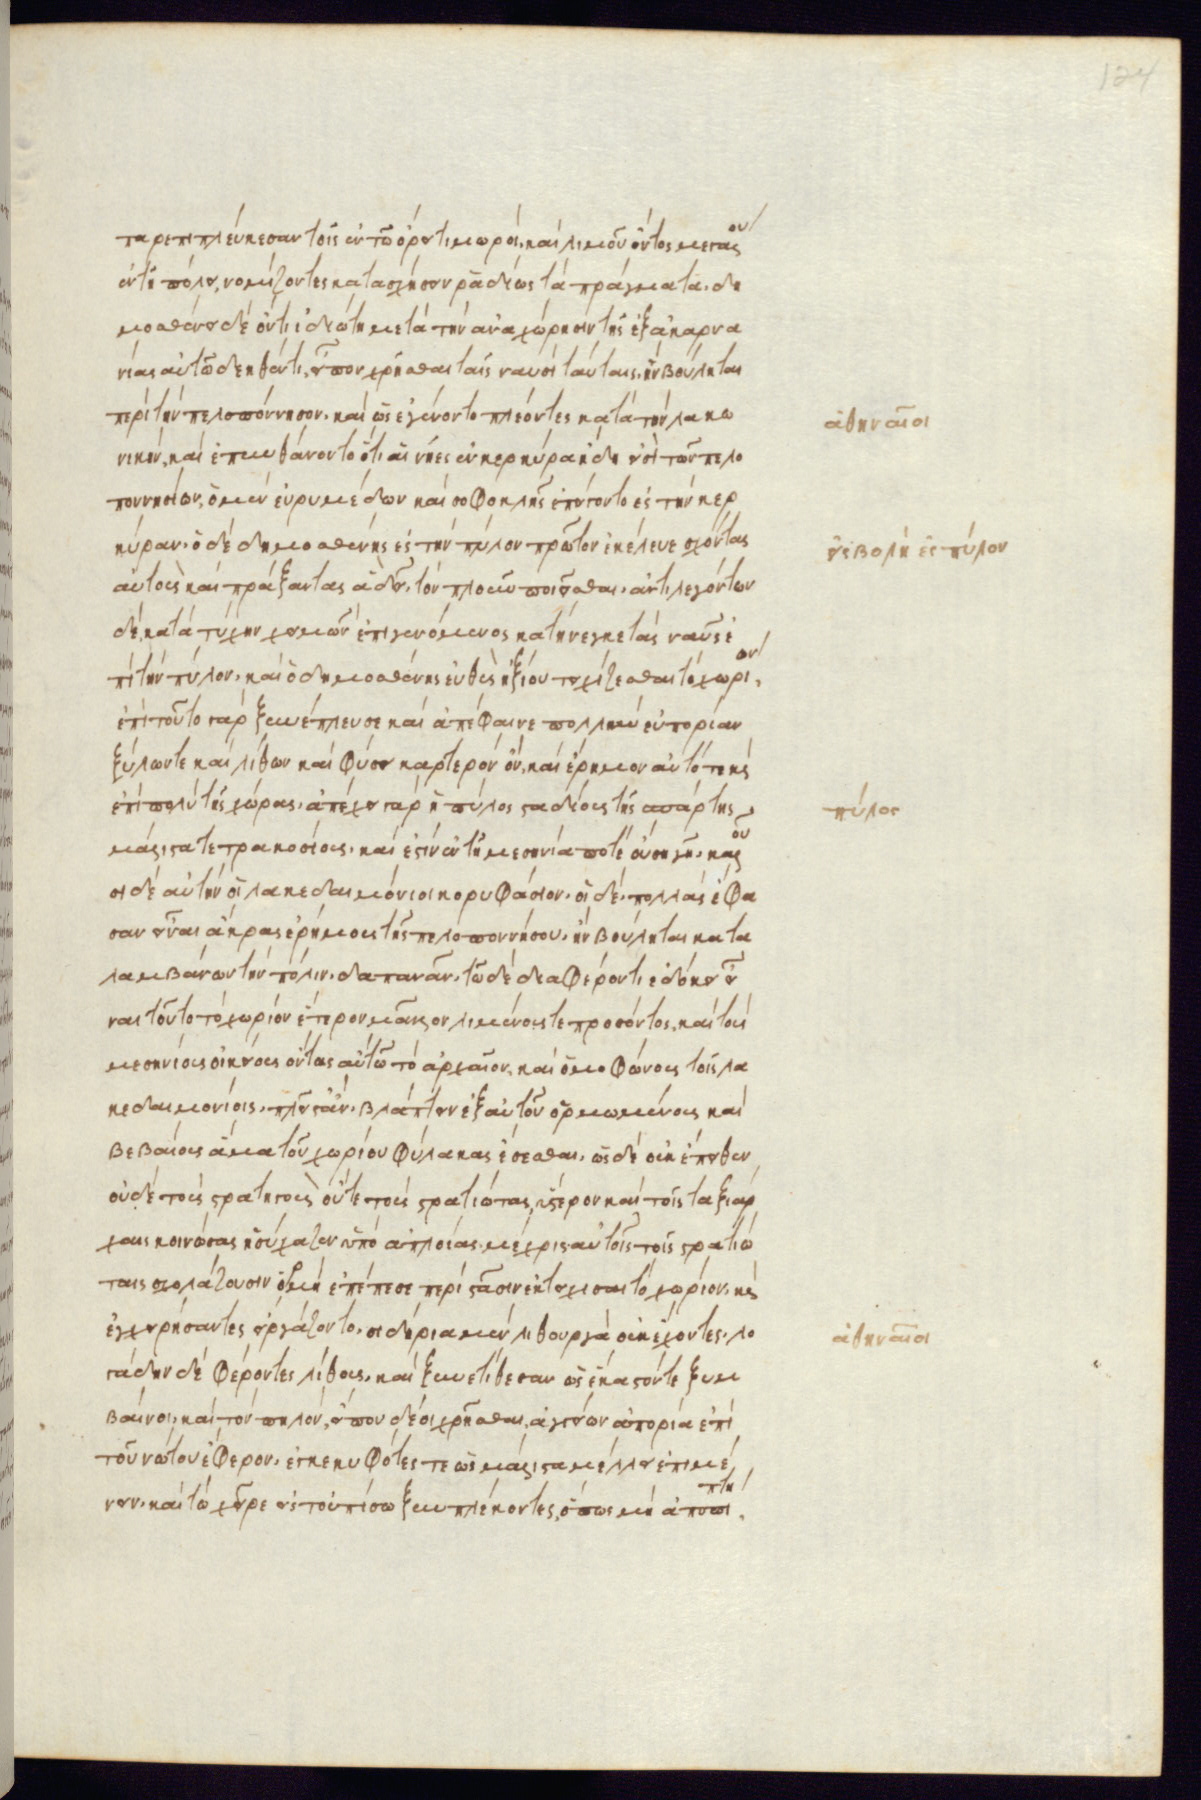 παρεπιπλεύκεσαν τοῖς ἐν τῶ ὄρει τιμωροί. καὶ λιμοῦ ὄντος μεγάλου
ἐν τῆ πόλει, νομίζοντες κατασχήσειν ῥαδίως τὰ πράγματα. δη
μοσθένει δὲ ὄντι ἰδιώτη μετὰ τὴν ἀναχώρησιν τῆς ἐξ ἀκαρνα
νίας αὐτῶ δεηθέντι, εἶπον χρῆσθαι ταῖς ναυσὶ ταύταις, ἢν βούληται
περὶ τὴν πελοπόννησον. καὶ ὡς ἐγένοντο πλέοντες κατὰ τὴν λακω
ἀθηναῖοι
νικὴν, καὶ ἐπυνθάνοντο ὅτι αἱ νῆες ἐν κερκύρα ἤδη εἰσὶ τῶν πελο
ποννησίων, ὁ μὲν εὐρυμέδων καὶ σοφοκλῆς ἠπείγοντο ἐς τὴν κερ
κύραν. ὁ δὲ δημοσθένης ἐς τὴν πύλον πρῶτον ἐκέλευε σχόντας
εἰσβολὴ ἐς πύλον
αὐτοὺς καὶ πράξαντας ἃ δεῖ, τὸν πλοῦν ποιεῖσθαι. ἀντιλεγόντων
δὲ, κατὰ τύχην χειμὼν ἐπιγενόμενος κατήνεγκε τὰς ναῦς ἐ
πὶ τὴν πύλον. καὶ ὁ δημοσθένης εὐθὺς ἠξίου τειχίζεσθαι τὸ χωρίον.
ἐπὶ τοῦτο γὰρ ξυνέπλευσε καὶ ἀπέφαινε πολλὴν εὐπορίαν
ξύλων τε καὶ λίθων καὶ φύσει καρτερὸν ὂν, καὶ ἐρῆμον αὐτό τε καὶ
ἐπὶ πολὺ τῆς χώρας. ἀπέχει γὰρ ἡ πύλος σταδίους τῆς σπάρτης
πύλος
μάλιστα τετρακοσίους. καὶ ἔστιν ἐν τῆ μεσηνία ποτὲ οὔση γῆ. καλοῦ
σι δὲ αὐτὴν οἱ λακεδαιμόνιοι κορυφάσιον. οἱ δὲ, πολλὰς ἔφα
σαν εἶναι ἄκρας ἐρήμους τῆς πελοποννήσου. ἢν βούληται κατα
λαμβάνων τὴν πόλιν. δαπανᾶν. τῶ δὲ διαφέροντι ἐδόκει εἶ
ναι τοῦτο τὸ χωρίον ἑτέρου μᾶλλον λιμένος τε προσόντος, καὶ τοὺς
μεσηνίους οἰκείους ὄντας αὐτῶ τὸ ἀρχαῖον. καὶ ὁμοφώνους τοῖς λα
κεδαιμονίοις. πλεῖστ' ἂν. βλάπτειν ἐξ αὐτοῦ ὁρμωμένους καὶ
βεβαίους ἅμα τοῦ χωρίου φύλακας ἔσεσθαι. ὡς δὲ οὐκ ἔπειθεν
οὐδὲ τοὺς στρατηγοὺς οὔτε τοὺς στρατιώτας, ὕστερον καὶ τοῖς ταξιάρ
χοις κοινώσας ἡσύχαζεν ὑπὸ ἀπλοίας. μέχρις αὐτοῖς τοῖς στρατιώ
ταις σχολάζουσιν ὁρμὴ ἐπέπεσε περὶ στᾶσιν ἐκτειχίσαι τὸ χωρίον. καὶ
ἐγχειρήσαντες εἰργάζοντο. σιδήρια μὲν λιθουργὰ οὐκ ἔχοντες. λο
ἀθηναῖοι
γάδην δὲ φέροντες λίθους. καὶ ξυνετίθεσαν ὡς ἕκαστόν τε ξυμ
βαίνοι. καὶ τὸν πηλὸν, εἴ που δέοι χρῆσθαι, ἀγγείων ἀπορία ἐπὶ
τοῦ νώτου ἔφερον. ἐγκεκυφότες τε ὡς μάλιστα μέλλει ἐπιμέ
νειν. καὶ τὼ χεῖρε εἰς τοὐπίσω ξυμπλέκοντες, ὅπως μὴ ἀποπίπτη.
124